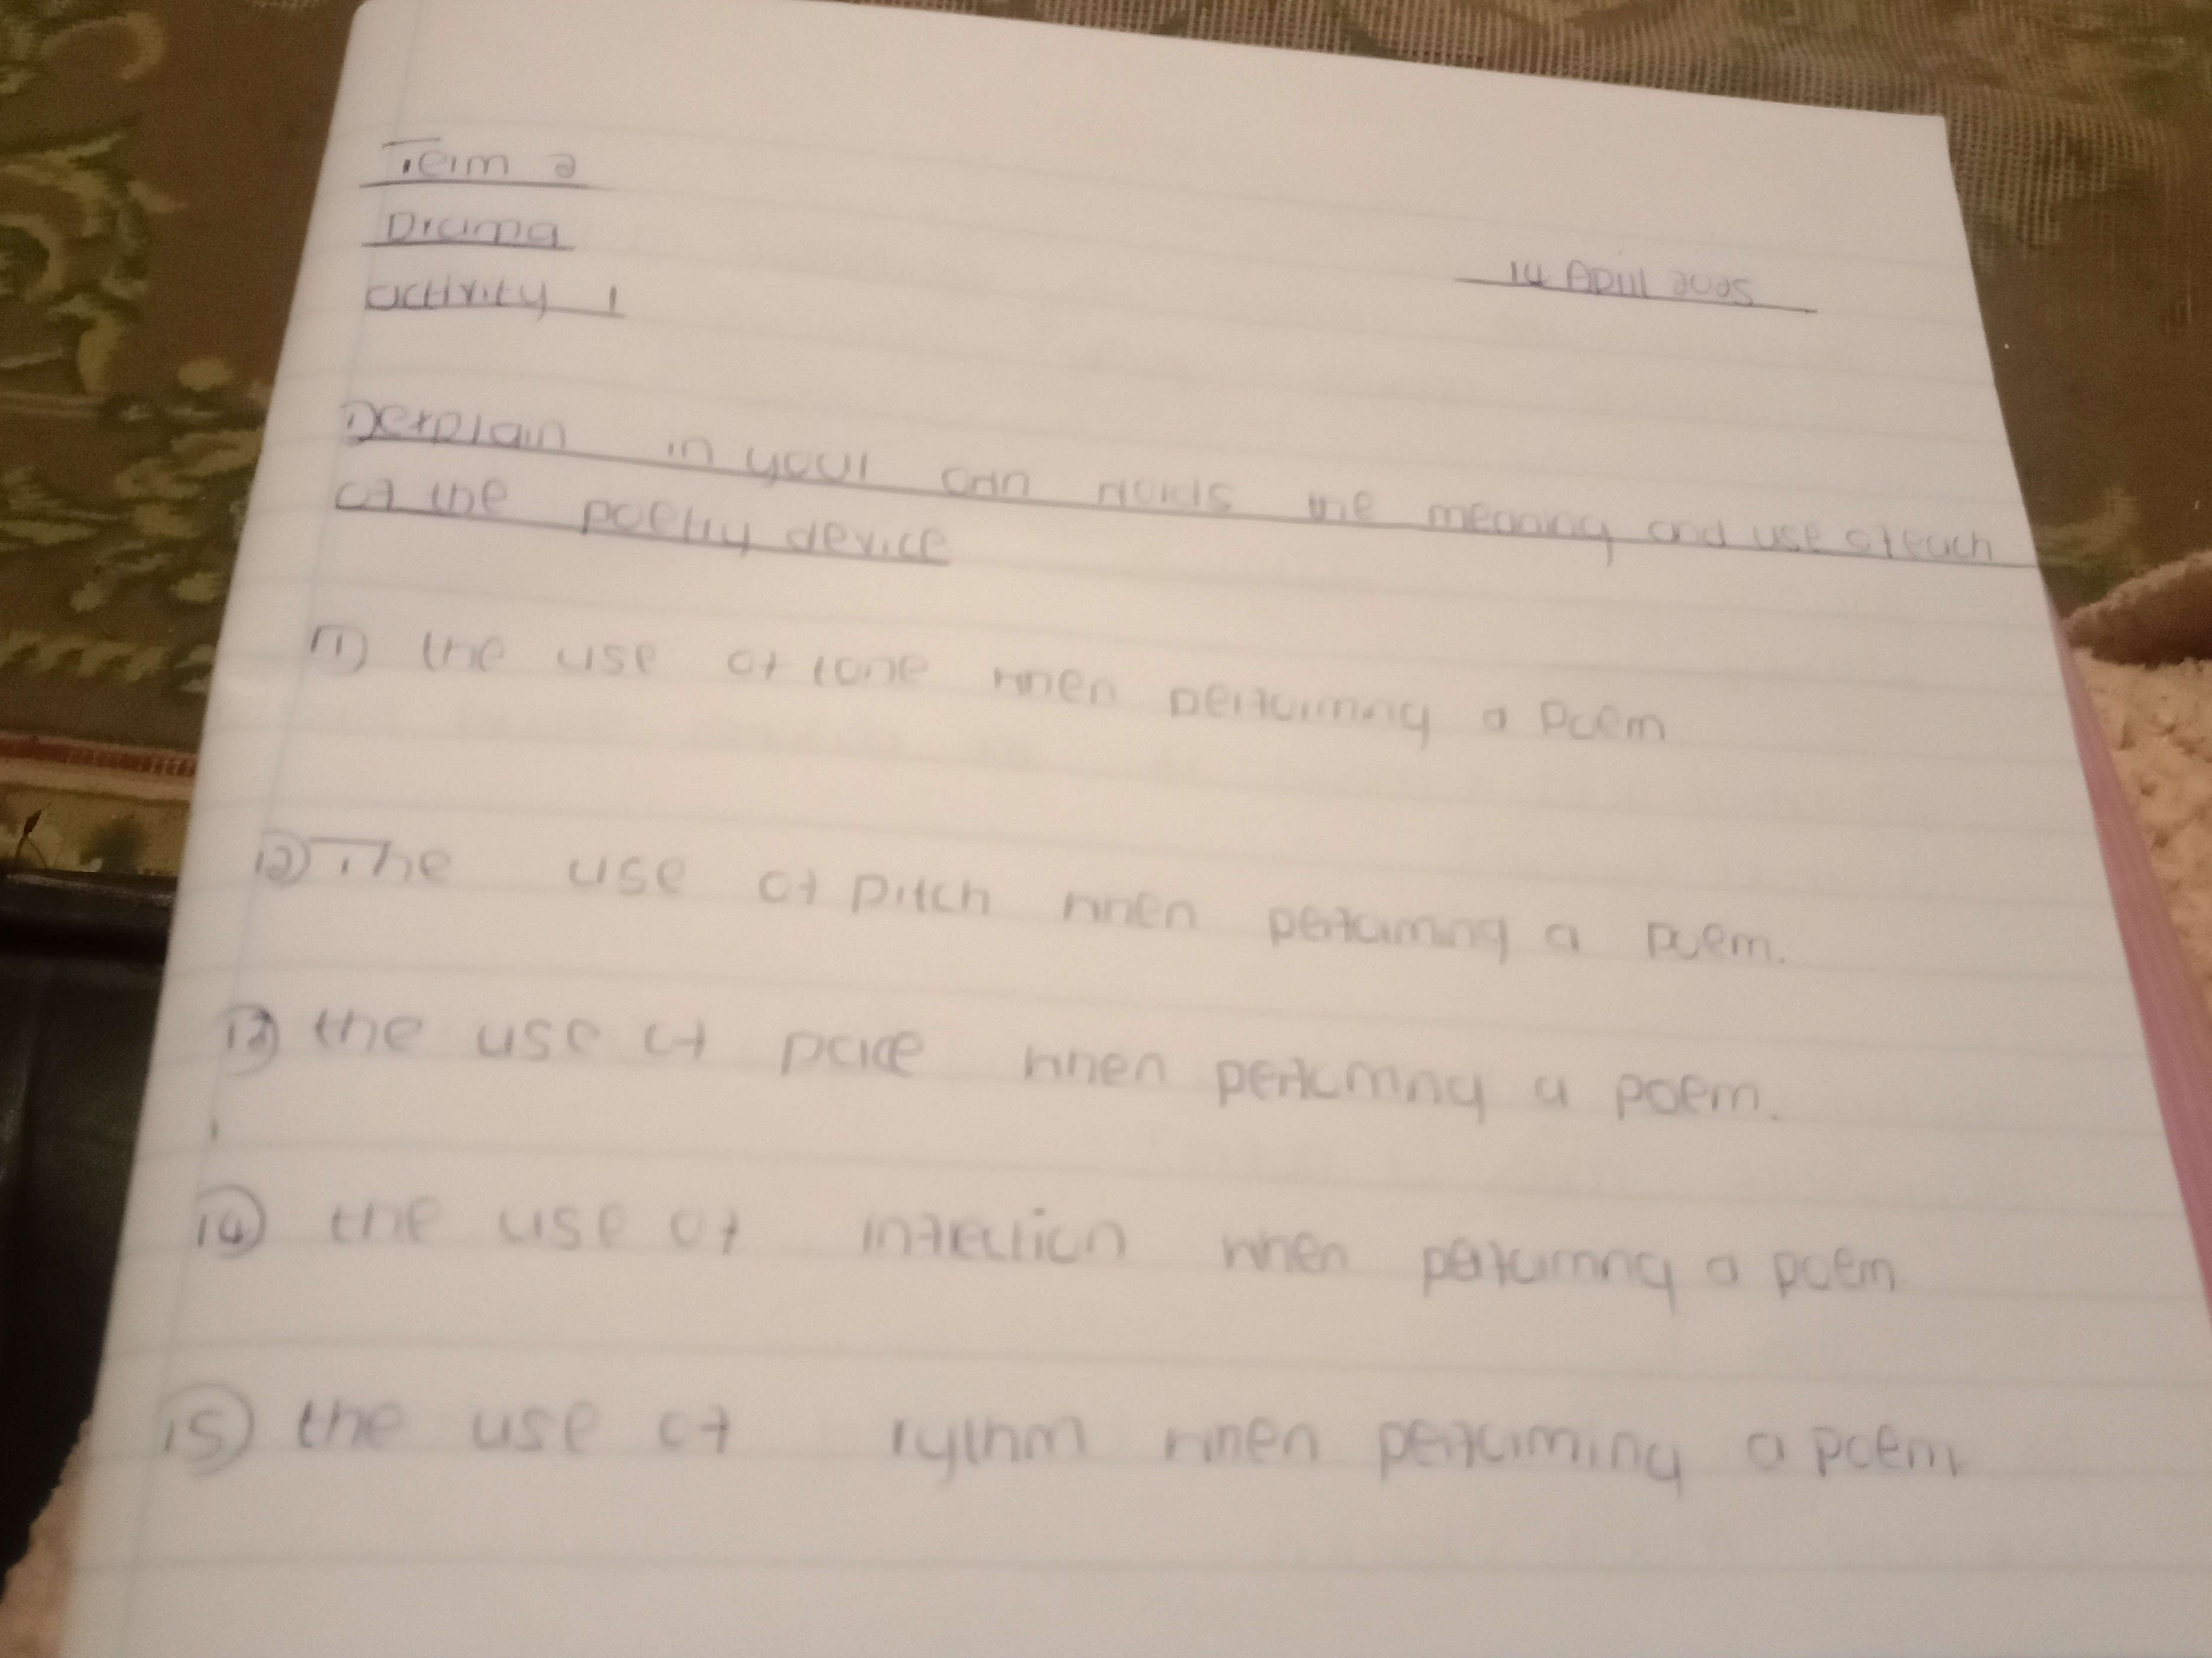 Term 2
Drama
14 April 2025
activity 1
1) explain in your own words the meaning and use of each
of the poetry device
1.1) the use of tone when performing a poem
1.2) The use of pitch when performing a poem.
1.3) the use of pace when performing a poem.
1.4) the use of inflection when performing a poem
1.5) the use of rythm when performing a poem